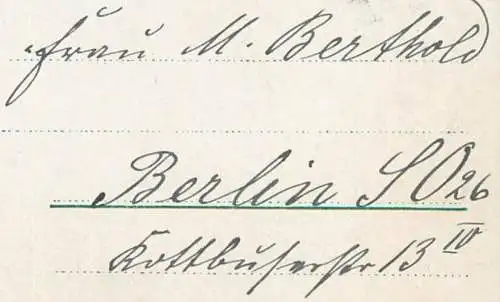 Frau M. Berthold
Berlin SO 26
Kottbuserstr 13 IV